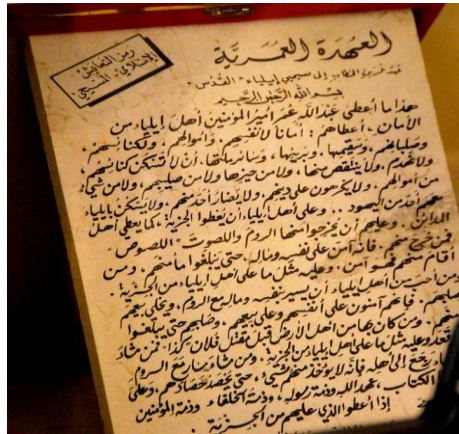 رمز التعايش
الإسلامي المسيحي
العهدة العمرية
من عمر بن الخطاب إلى مسيحيي إيلياء - القدس -
بسم الله الرحمن الرحيم
هذا ما أعطى عبد الله عمر أمير المؤمنين أهل إيلياء من
الأمان، أعطاهم: أماناً لأنفسهم، وأموالهم، ولكنائسهم،
وصلبانهم، وسقيمها، وبريئها، وسائر ملتها، أن لا تسكن كنائسهم،
ولا تهدم، ولا ينتقص منها، ولا من حيزها ولا من صليبهم، ولا من شيء
من أموالهم. ولا يكرهون على دينهم. ولا يضار أحد منهم. ولا يسكن بإيلياء
معهم أحد من اليهود.. وعلى أهل إيلياء أن يعطوا الجزية، كما يعطي أهل
المدائن. وعليهم أن يخرجوا منها الروم واللصوت - اللصوص -
فمن خرج منهم. فإنه آمن على نفسه وماله حتى يبلغوا مأمنهم، ومن
أقام منهم فهو آمن. وعليه مثل ما على أهل إيلياء من الجزية.
ومن أحب من أهل إيلياء أن يسير بنفسه وماله مع الروم، ويخلي بيعهم
وصلبهم. فإنهم آمنون على أنفسهم وعلى بيعهم، وصلبهم حتى يبلغوا
مأمنهم. ومن كان بها من أهل الأرض قبل مقتل فلان - كذا - فمن شاء
قعد وعليه مثل ما على أهل إيلياء من الجزية. ومن شاء سار مع الروم
رجع إلى أهله فإنه لا يؤخذ منهم شيء، حتى يحصد حصادهم، وعلى
الكتاب، عهد الله وذمة رسوله، وذمة الخلفاء وذمة المؤمنين
إذا أعطوا الذي عليهم من الجزية.